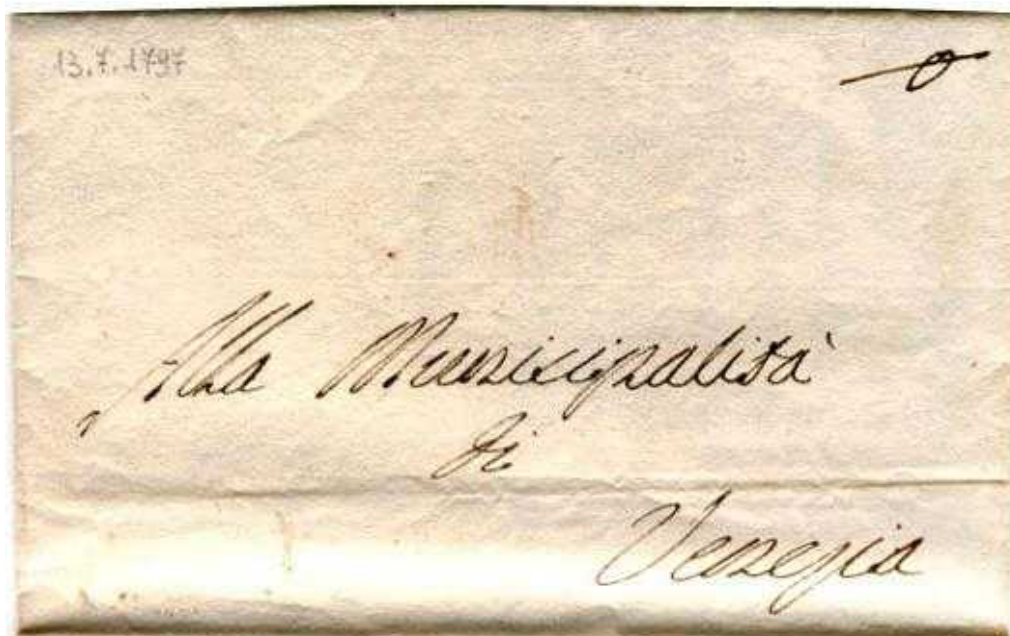 13.7.1797
Alla Municipalità
di
Venezia